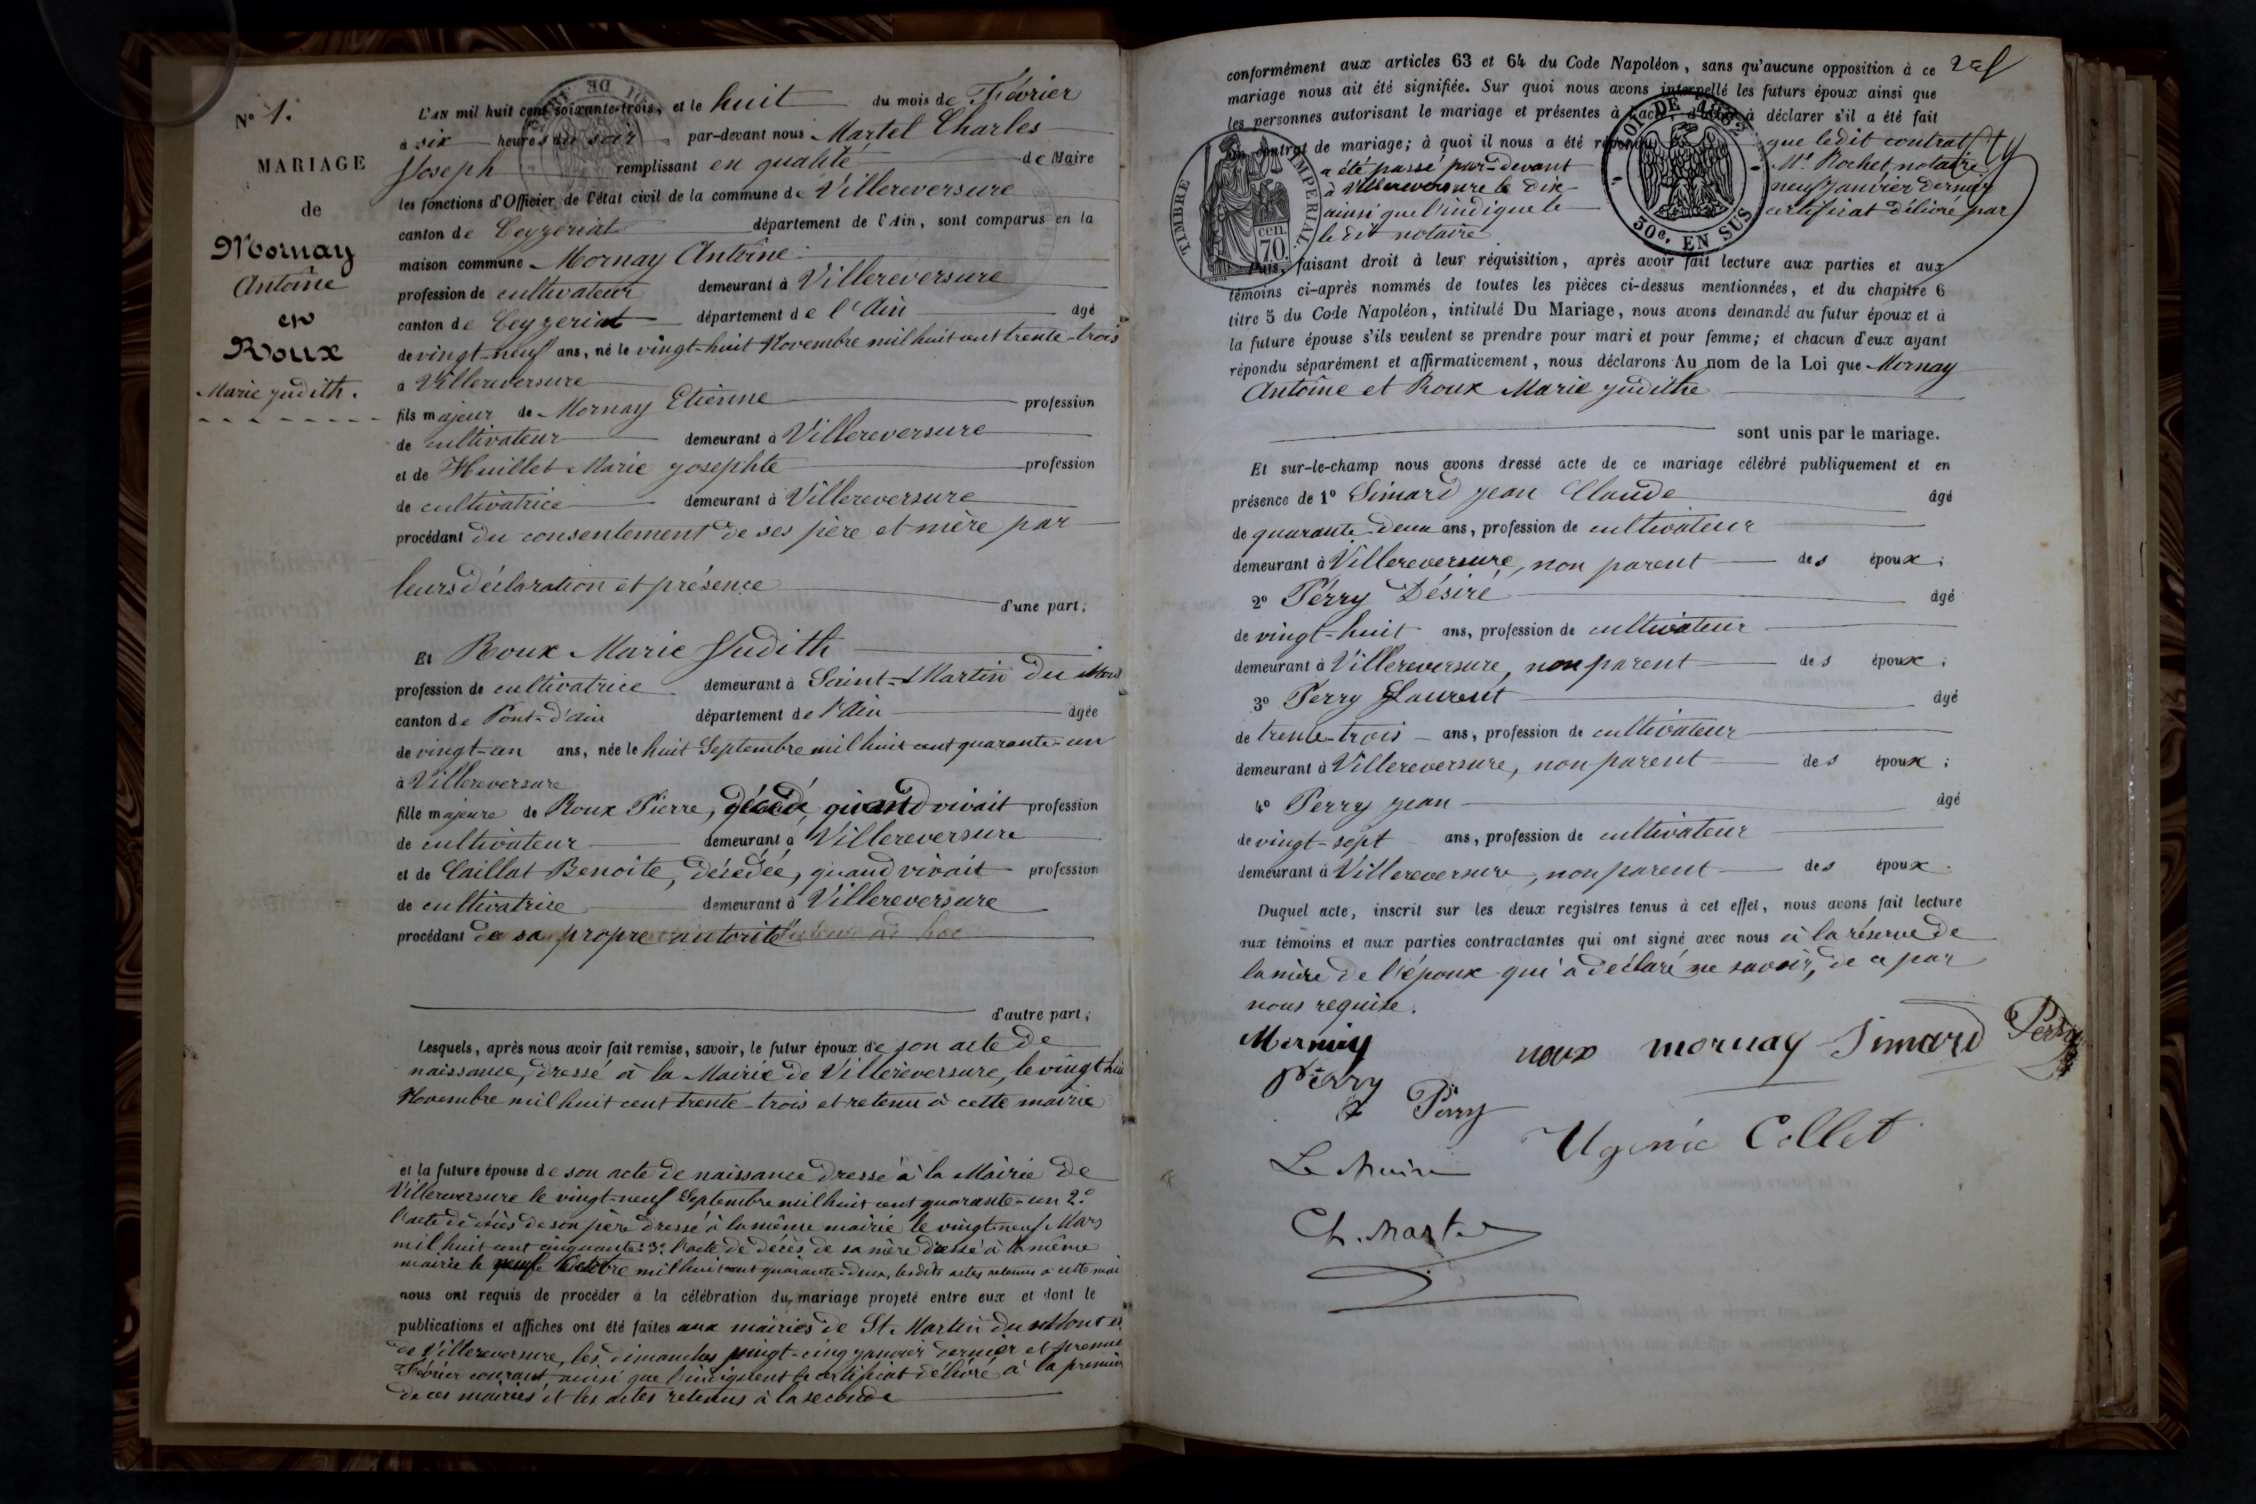 N° 1.
MARIAGE
de
Mornay
Antoine
et
Roux
Marie judith.
L'AN mil huit cent soixante-trois, et le huit du mois de Février
à six heures du soir par-devant nous Martel Charles
Joseph remplissant en qualité de Maire
les fonctions d'Officier de l'état civil de la commune de Villereversure
canton de Ceyzeriat département de l'Ain, sont comparus en la
maison commune Mornay Antoine
profession de cultivateur demeurant à Villereversure
canton de Ceyzeriat département de l'Ain âgé
de vingt-neuf ans, né le vingt-huit Novembre mil huit cent trente-trois
à Villereversure
fils majeur de Mornay Etienne profession
de cultivateur demeurant à Villereversure
et de Huillet Marie josephte profession
de cultivatrice demeurant à Villereversure
procédant du consentement de ses père et mère par
leurs déclaration et présence
d'une part;
Et Roux Marie Judith
profession de cultivatrice demeurant à Saint-Martin du Mont
canton de Pont-d'ain département de l'Ain âgée
de vingt-un ans, née le huit Septembre mil huit cent quarante-un
à Villereversure
fille majeure de Roux Pierre, décédé, quand vivait profession
de cultivateur demeurant à Villereversure
et de Caillat Benoite, décédée, quand vivait profession
de cultivatrice demeurant à Villereversure
procédant de sa propre autorité
d'autre part;
Lesquels, après nous avoir fait remise, savoir, le futur époux de son acte de
naissance, dressé à la Mairie de Villereversure, le vingt huit
Novembre mil huit cent trente-trois et retenu à cette mairie
et la future épouse de son acte de naissance dressé à la Mairie de
Villereversure le vingt-neuf Septembre mil huit cent quarante-un 2°
l'acte de décès de son père dressé à la même mairie le vingt-neuf Mars
mil huit cent cinquante: 3° l'acte de décès de sa mère dressé à la même
mairie le Octobre mil huit cent quarante-deux, lesdits actes retenus à cette mairie
nous ont requis de procéder à la célébration du mariage projeté entre eux et dont le
publications et affiches ont été faites aux mairies de St. Martin du Mont et
de Villereversure, les dimanches vingt-cinq janvier dernier et premier
Février courant ainsi que l'indiquent le certificat délivré à la première
de ces mairies et les actes retenus à la seconde
conformément aux articles 63 et 64 du Code Napoléon, sans qu'aucune opposition à ce
mariage nous ait été signifiée. Sur quoi nous avons interpellé les futurs époux ainsi que
les personnes autorisant le mariage et présentes à l'acte, d'avoir à déclarer s'il a été fait
un contrat de mariage; à quoi il nous a été répondu que ledit contrat
a été passé par-devant Me Rochet notaire
à Villereversure le dix-neuf janvier dernier
ainsi que l'indique le certificat délivré par
le dit notaire
TIMBRE IMPERIAL
70 cen.
LOI DE 1862
30c. EN SUS
Puis, faisant droit à leur réquisition, après avoir fait lecture aux parties et aux
témoins ci-après nommés de toutes les pièces ci-dessus mentionnées, et du chapitre 6
titre 5 du Code Napoléon, intitulé Du Mariage, nous avons demandé au futur époux et à
la future épouse s'ils veulent se prendre pour mari et pour femme; et chacun d'eux ayant
répondu séparément et affirmativement, nous déclarons Au nom de la Loi que Mornay
Antoine et Roux Marie judithe
sont unis par le mariage.
Et sur-le-champ nous avons dressé acte de ce mariage célébré publiquement et en
présence de 1° Simard jean Claude âgé
de quarante-deux ans, profession de cultivateur
demeurant à Villereversure, non parent des époux;
2° Perry Désiré âgé
de vingt-huit ans, profession de cultivateur
demeurant à Villereversure, non parent des époux;
3° Perry Laurent âgé
de trente-trois ans, profession de cultivateur
demeurant à Villereversure, non parent des époux;
4° Perry jean âgé
de vingt-sept ans, profession de cultivateur
demeurant à Villereversure, non parent des époux.
Duquel acte, inscrit sur les deux registres tenus à cet effet, nous avons fait lecture
aux témoins et aux parties contractantes qui ont signé avec nous à la réserve de
la mère de l'époux qui a déclaré ne savoir, de ce par
nous requise.
Mornay roux mornay Simard Perry
Perry
Perry
Le Maire Ugenie Collet
Ch. Martel